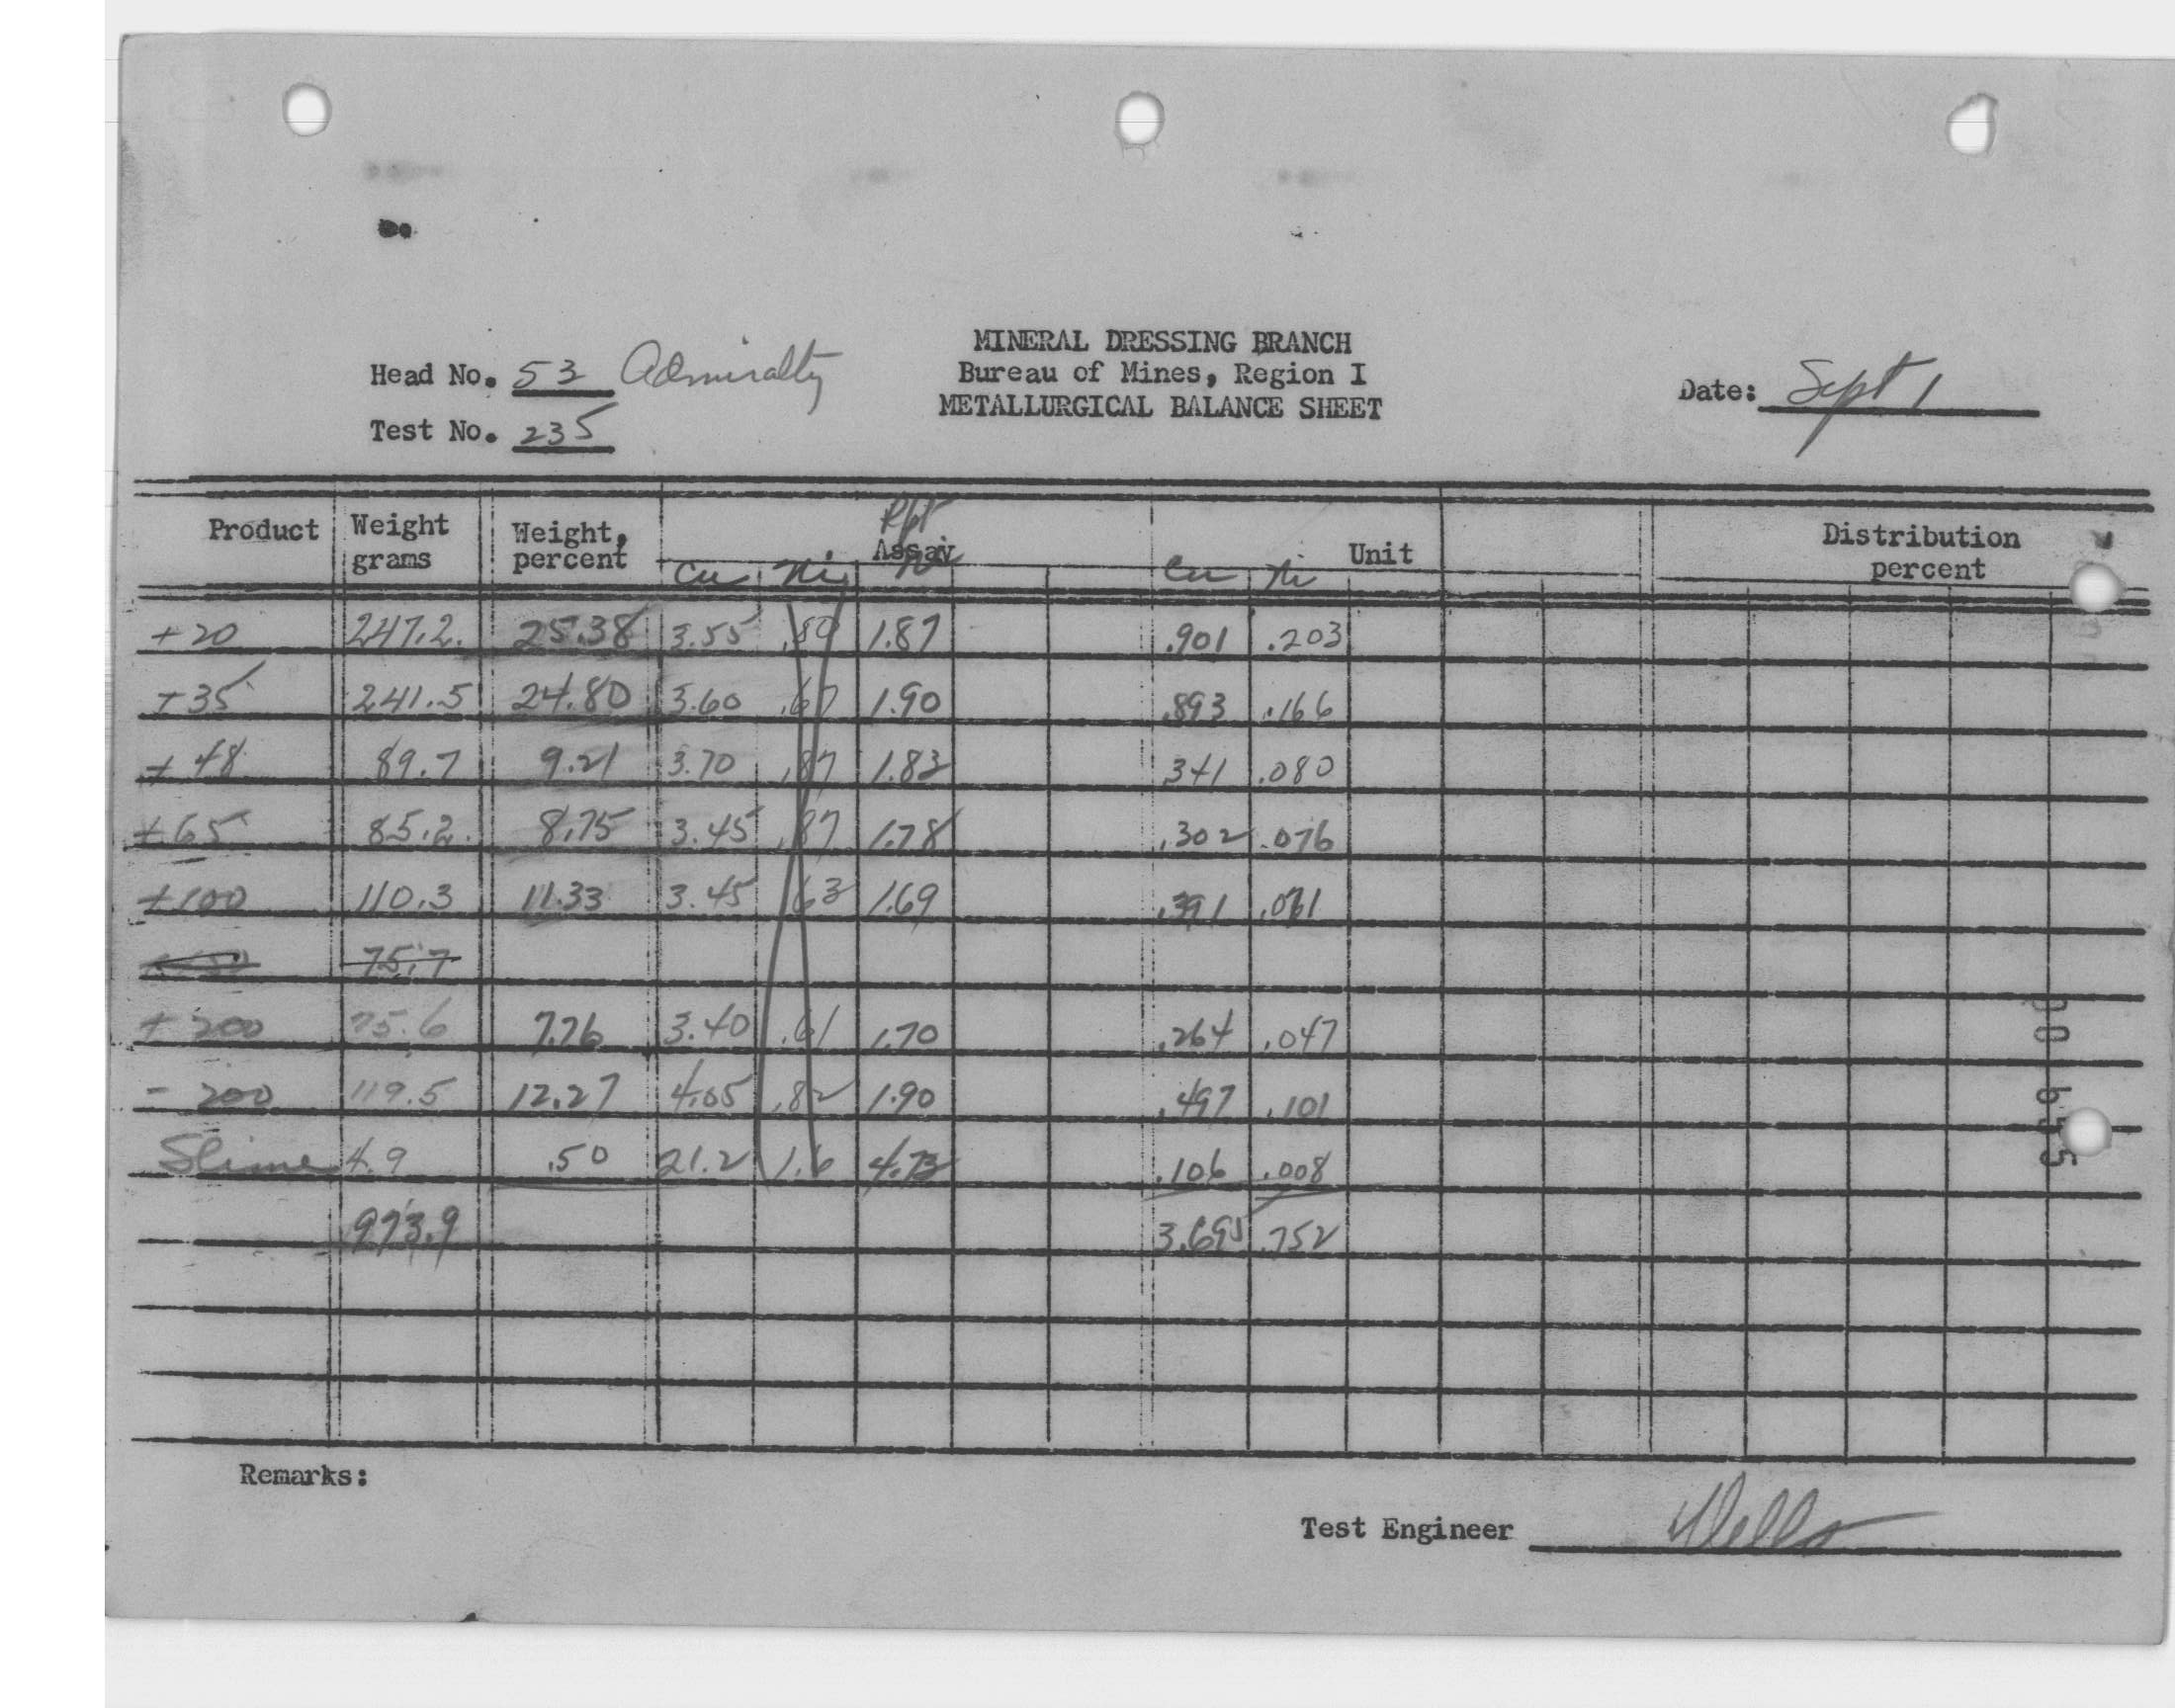 MINERAL DRESSING BRANCH
Head No. 53 Admiralty Bureau of Mines, Region I Date: Sept 1
METALLURGICAL BALANCE SHEET
Test No. 235
Rpt
Product Weight grams Weight, percent Assay Unit Distribution percent
Cu Ni Ni Cu Ni
+20 247.2 25.38 3.55 .80 1.87 .901 .203
+35 241.5 24.80 3.60 .67 1.90 .893 .166
+48 89.7 9.21 3.70 .87 1.83 .341 .080
+65 85.2 8.75 3.45 .87 1.78 .302 .076
+100 110.3 11.33 3.45 .63 1.69 .391 .071
75.7
+200 75.6 7.76 3.40 .61 1.70 .264 .047
-200 119.5 12.27 4.05 .82 1.90 .497 .101
Slime 4.9 .50 21.2 1.6 4.73 .106 .008
973.9 3.695 .752
Remarks:
Test Engineer